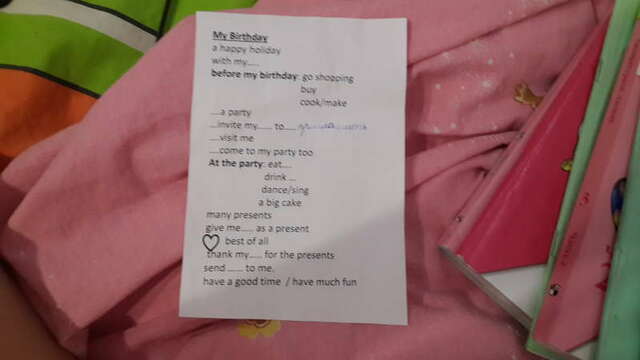 My Birthday
a happy holiday
with my.....
before my birthday: go shopping
buy
cook/make
....a party
...invite my..... to....
....visit me
....come to my party too
At the party: eat....
drink ...
dance/sing
a big cake
many presents
give me..... as a present
best of all
thank my..... for the presents
send ....... to me.
have a good time / have much fun